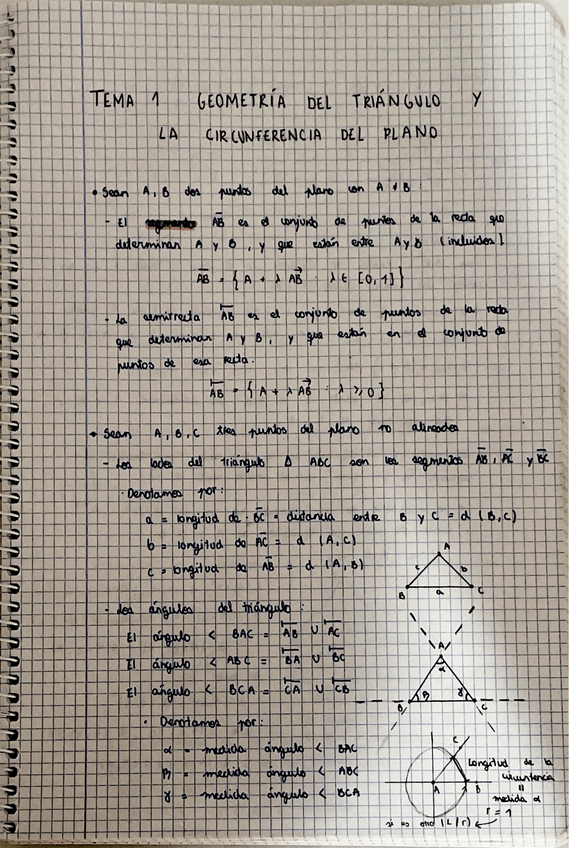 TEMA 1 GEOMETRÍA DEL TRIÁNGULO Y
LA CIRCUNFERENCIA DEL PLANO
• Sean A, B dos puntos del plano con A ≠ B:
- El segmento A̅B̅ es el conjunto de puntos de la recta que
determinan A y B, y que están entre A y B (incluidos)
A̅B̅ = { A + λ AB⃗ : λ ∈ [0,1] }
- La semirrecta |A̅B̅ es el conjunto de puntos de la recta
que determinan A y B, y que están en el conjunto de
puntos de esa recta.
|A̅B̅ = { A + λ AB⃗ : λ ≥ 0 }
• Sean A, B, C tres puntos del plano no alineados
- Los lados del triángulo Δ ABC son los segmentos A̅B̅, A̅C̅ y B̅C̅
· Denotamos por:
a = longitud de B̅C̅ = distancia entre B y C = d (B,C)
b = longitud de A̅C̅ = d (A,C)
c = longitud de A̅B̅ = d (A,B)
A
c b
B a C
- Los ángulos del triángulo:
El ángulo < BAC = |A̅B̅ ∪ |A̅C̅
El ángulo < ABC = |B̅A̅ ∪ |B̅C̅
El ángulo < BCA = |C̅A̅ ∪ |C̅B̅
A
α
B β γ C
· Denotamos por:
α = medida ángulo < BAC
β = medida ángulo < ABC
γ = medida ángulo < BCA
C
A B
Longitud de la
circunferencia
=
medida α
r = 1
(L/r)